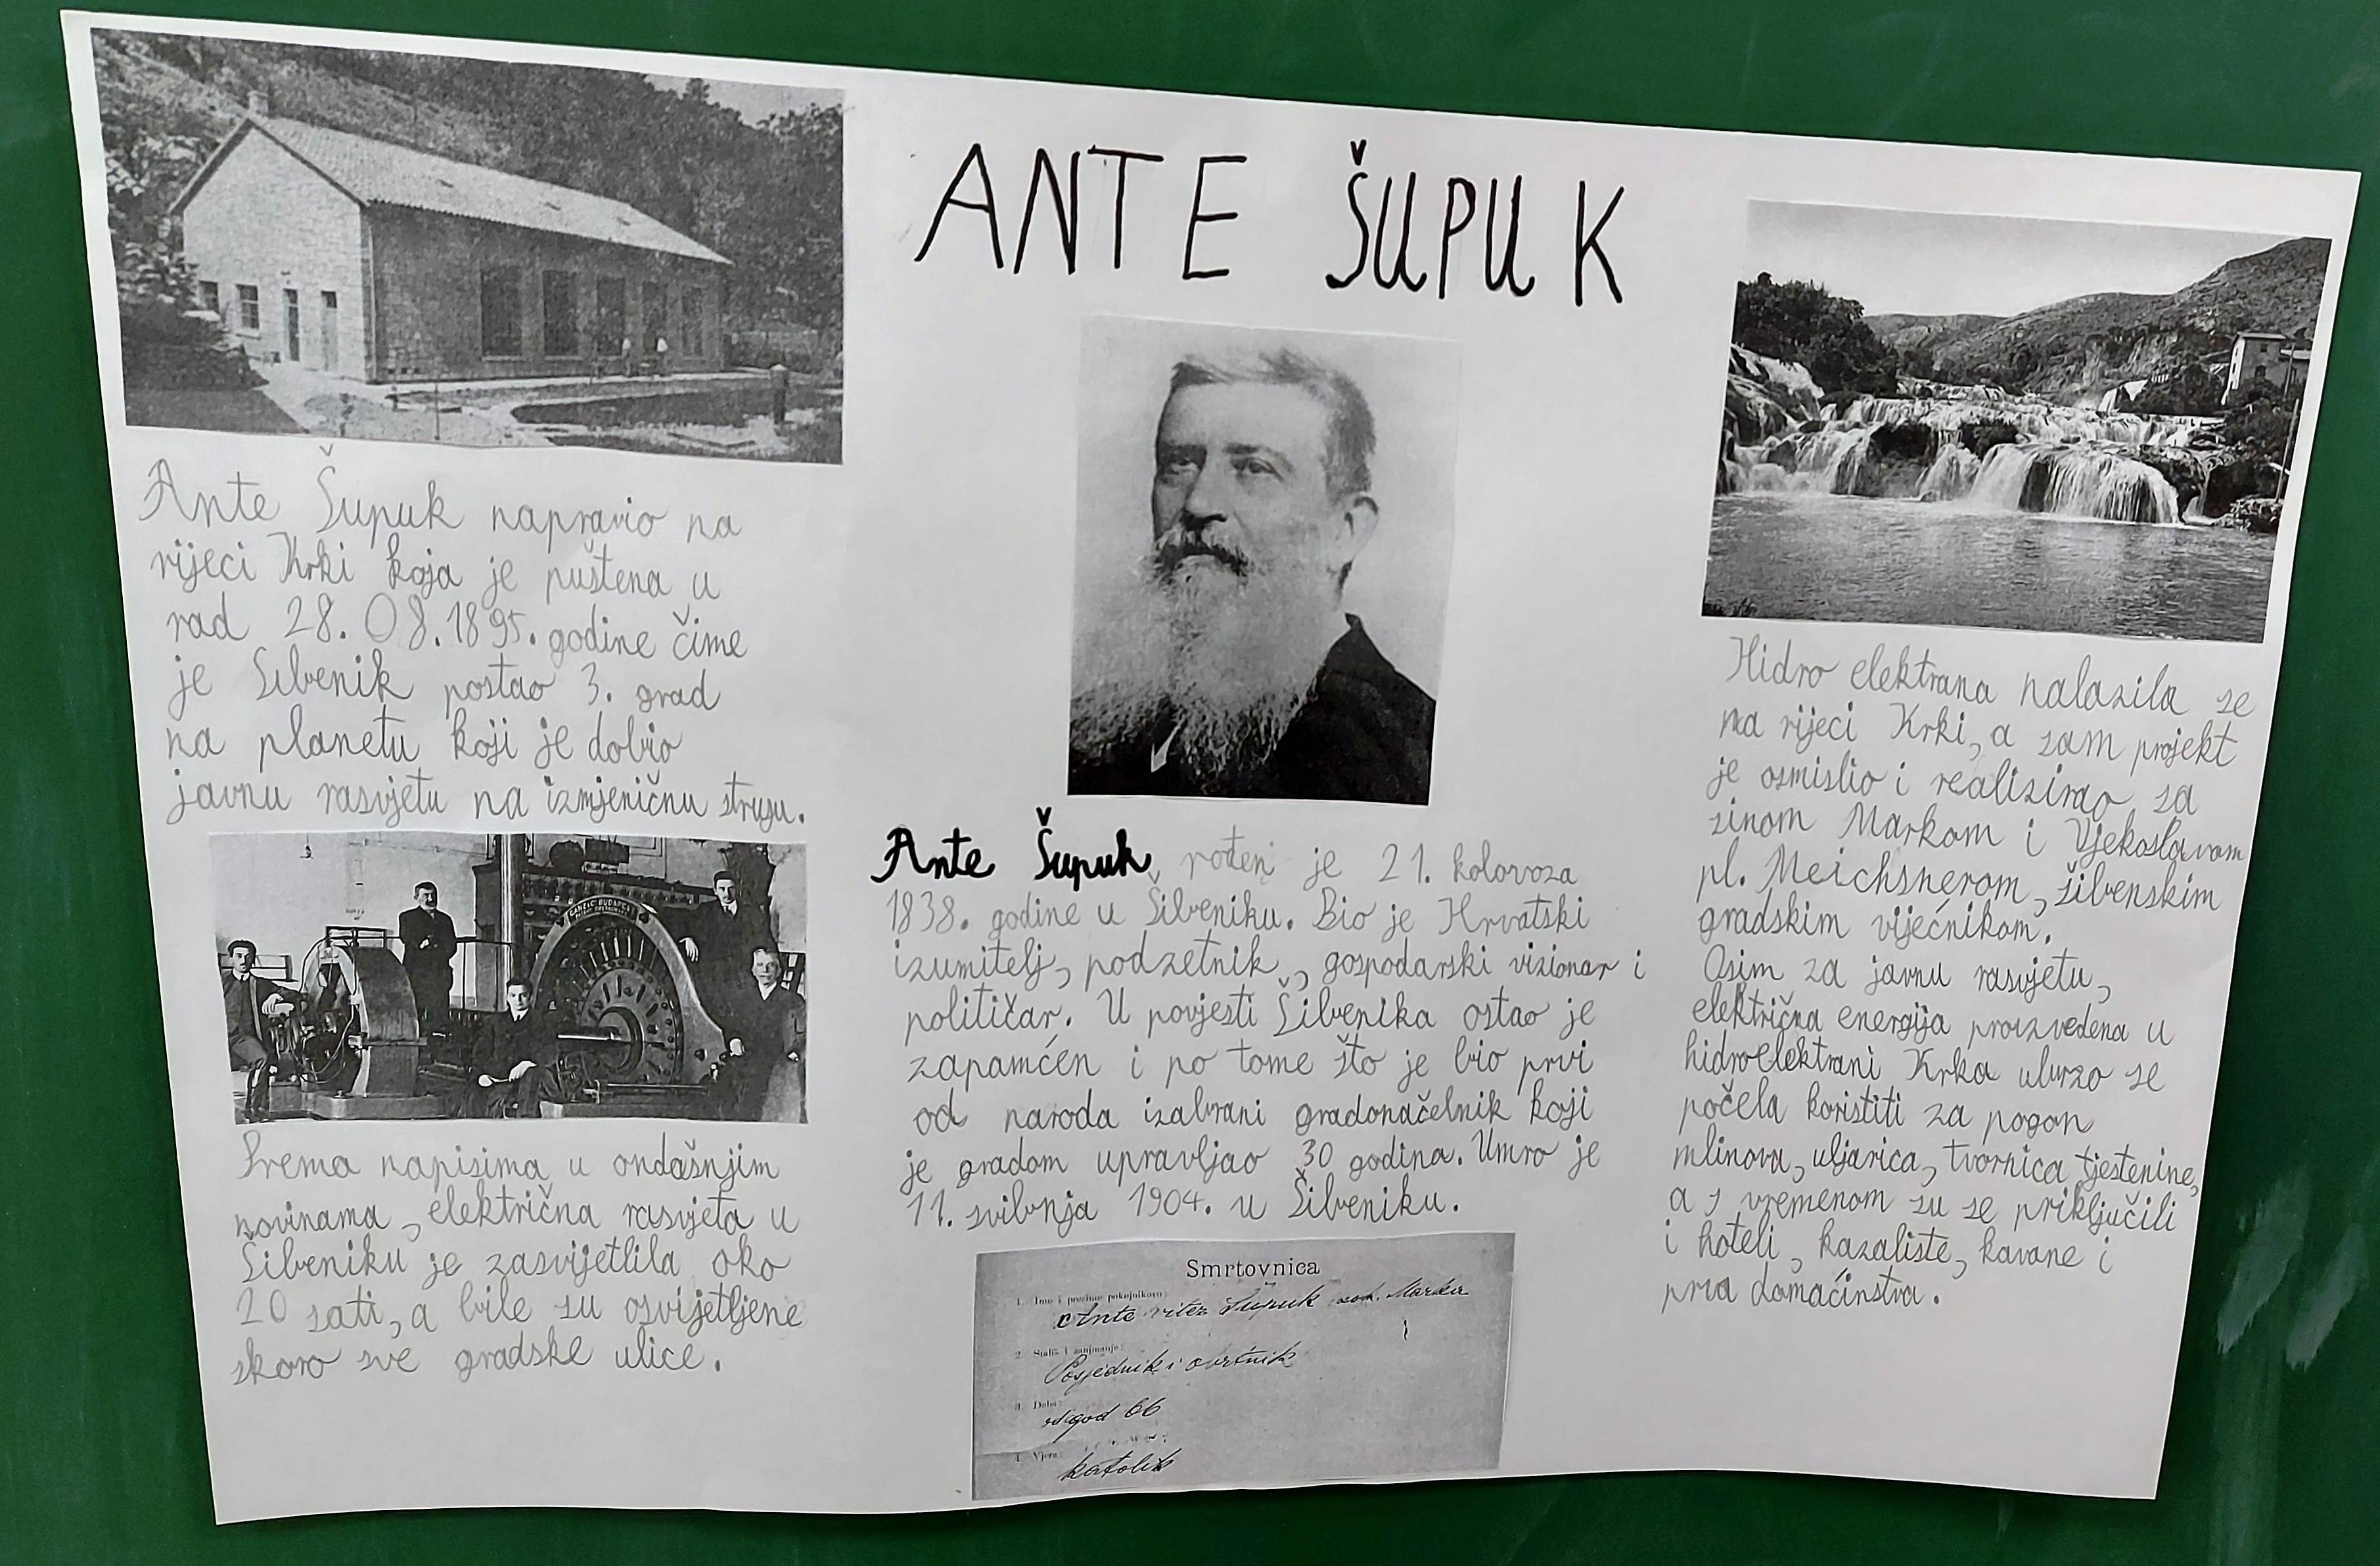 ANTE ŠUPUK
Ante Šupuk napravio na
rijeci Krki koja je puštena u
rad 28. 08. 1895. godine čime
je Šibenik postao 3. grad
na planetu koji je dobio
javnu rasvjetu na izmjeničnu struju.
GANZ & Co BUDAPEST
Prema napisima u ondašnjim
novinama, električna rasvjeta u
Šibeniku je zasvijetlila oko
20 sati, a bile su osvijetljene
skoro sve gradske ulice.
Ante Šupuk, rođen je 21. kolovoza
1838. godine u Šibeniku. Bio je Hrvatski
izumitelj, podzetnik, gospodarski vizionar i
političar. U povjesti Šibenika ostao je
zapamćen i po tome što je bio prvi
od naroda izabrani gradonačelnik koji
je gradom upravljao 30 godina. Umro je
11. svibnja 1904. u Šibeniku.
Smrtovnica
1. Ime i prezime pokojnikovo:
Ante vitez Šupuk pok. Marka
2. Stališ i zanimanje:
Posjednik i obrtnik
3. Doba:
od god 66
4. Vjera:
katolik
Hidro elektrana nalazila se
na rijeci Krki, a sam projekt
je osmislio i realizirao sa
sinom Markom i Vjekoslavom
pl. Meichsnerom, šibenskim
gradskim vijećnikom.
Osim za javnu rasvjetu,
električna energija proizvedena u
hidroelektrani Krka ubrzo se
počela koristiti za pogon
mlinova, uljarica, tvornica tjestenine,
a s vremenom su se priključili
i hoteli, kazaliste, kavane i
prva domaćinstva.